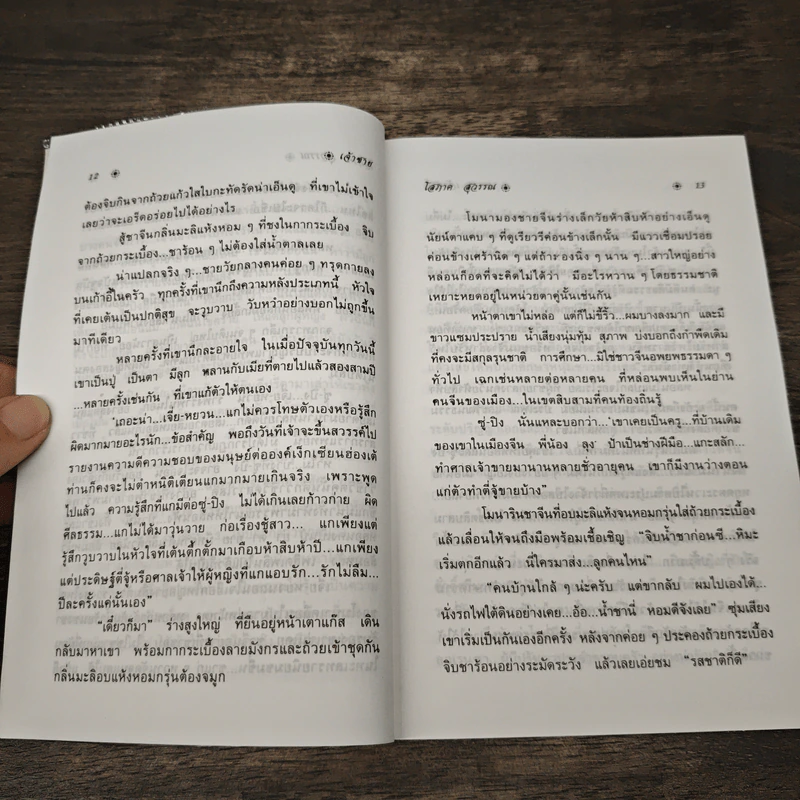 12
เจ้าชาย
ต้องจิบกินจากถ้วยแก้วใสใบกะทัดรัดน่าเอ็นดู ที่เขาไม่เข้าใจ
เลยว่าจะเอร็ดอร่อยไปได้อย่างไร
สู้ชาจีนกลิ่นมะลิแห้งหอม ๆ ที่ชงในกากระเบื้อง จิบ
จากถ้วยกระเบื้อง...ชาร้อน ๆ ไม่ต้องใส่น้ำตาลเลย
น่าแปลกจริง ๆ...ชายวัยกลางคนค่อย ๆ ทรุดกายลง
บนเก้าอี้ในครัว ทุกครั้งที่เขานึกถึงความหลังประเภทนี้ หัวใจ
ที่เคยเต้นเป็นปกติสุข จะวูบวาบ วับหวำอย่างบอกไม่ถูกขึ้น
มาทีเดียว
หลายครั้งที่เขานึกละอายใจ ในเมื่อปัจจุบันทุกวันนี้
เขาเป็นปู่ เป็นตา มีลูก หลานกับเมียที่ตายไปแล้วสองสามปี
...หลายครั้งเช่นกัน ที่เขาแก้ตัวให้ตนเอง
'เถอะน่า...เจี่ย-หยวน...แกไม่ควรโทษตัวเองหรือรู้สึก
ผิดมากมายอะไรนัก...ข้อสำคัญ พอถึงวันที่เจ้าจะขึ้นสวรรค์ไป
รายงานความดีความชอบของมนุษย์ต่อองค์เง็กเซียนฮ่องเต้
ท่านก็คงจะไม่ตำหนิติเตียนแกมากมายเกินจริง เพราะพูด
ไปแล้ว ความรู้สึกที่แกมีต่อซู่-ปิง ไม่ได้เกินเลยก้าวก่าย ผิด
ศีลธรรม...แกไม่ได้มาวุ่นวาย ก่อเรื่องชู้สาว... แกเพียงแต่
รู้สึกวูบวาบในหัวใจที่เต้นตึ้กตั้กมาเกือบห้าสิบห้าปี...แกเพียง
แต่ประดิษฐ์ตี่จู้หรือศาลเจ้าให้ผู้หญิงที่แกแอบรัก...รักไม่ลืม...
ปีละครั้งแค่นั้นเอง"
"เดี๋ยวก็มา" ร่างสูงใหญ่ ที่ยืนอยู่หน้าเตาแก๊ส เดิน
กลับมาหาเขา พร้อมกากระเบื้องลายมังกรและถ้วยเข้าชุดกัน
กลิ่นมะลิอบแห้งหอมกรุ่นต้องจมูก
โสภาค สุวรรณ
13
โมนามองชายจีนร่างเล็กวัยห้าสิบห้าอย่างเอ็นดู
นัยน์ตาแคบ ๆ ที่ดูเรียวรีค่อนข้างเล็กนั้น มีแววเชื่อมปรอย
ค่อนข้างเศร้านิด ๆ แต่ถ้าจ้องนิ่ง ๆ นาน ๆ...สาวใหญ่อย่าง
หล่อนก็อดที่จะคิดไม่ได้ว่า มีอะไรหวาน ๆ โดยธรรมชาติ
เหยาะหยดอยู่ในหน่วยตาคู่นั้นเช่นกัน
หน้าตาเขาไม่หล่อ แต่ก็ไม่ขี้ริ้ว...ผมบางลงมาก และมี
ขาวแซมประปราย น้ำเสียงนุ่มทุ้ม สุภาพ บ่งบอกถึงกำพืดเดิม
ที่คงจะมีสกุลรุนชาติ การศึกษา...มิใช่ชาวจีนอพยพธรรมดา ๆ
ทั่วไป เฉกเช่นหลายต่อหลายคน ที่หล่อนพบเห็นในย่าน
คนจีนของเมือง...ในเขตสิบสามที่คนท้องถิ่นรู้
ซู่-ปิง นั่นแหละบอกว่า...'เขาเคยเป็นครู...ที่บ้านเดิม
ของเขาในเมืองจีน พี่น้อง ลุง ป้าเป็นช่างฝีมือ...แกะสลัก...
ทำศาลเจ้าขายมานานหลายชั่วอายุคน เขาก็มีงานว่างตอน
แก่ตัวทำตี่จู้ขายบ้าง"
โมนารินชาจีนที่อบมะลิแห้งจนหอมกรุ่นใส่ถ้วยกระเบื้อง
แล้วเลื่อนให้จนถึงมือพร้อมเชื้อเชิญ "จิบน้ำชาก่อนซี...หิมะ
เริ่มตกอีกแล้ว นี่ใครมาส่ง...ลูกคนไหน"
"คนบ้านใกล้ ๆ น่ะครับ แต่ขากลับ ผมไปเองได้...
นั่งรถไฟใต้ดินอย่างเคย...อ้อ...น้ำชานี่ หอมดีจังเลย" ซุ่มเสียง
เขาเริ่มเป็นกันเองอีกครั้ง หลังจากค่อย ๆ ประคองถ้วยกระเบื้อง
จิบชาร้อนอย่างระมัดระวัง แล้วเลยเอ่ยชม "รสชาติก็ดี"